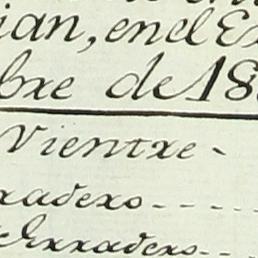 ian, en el Ex
bre de 18
Vientre -
rradero - - - -
Herradero - -